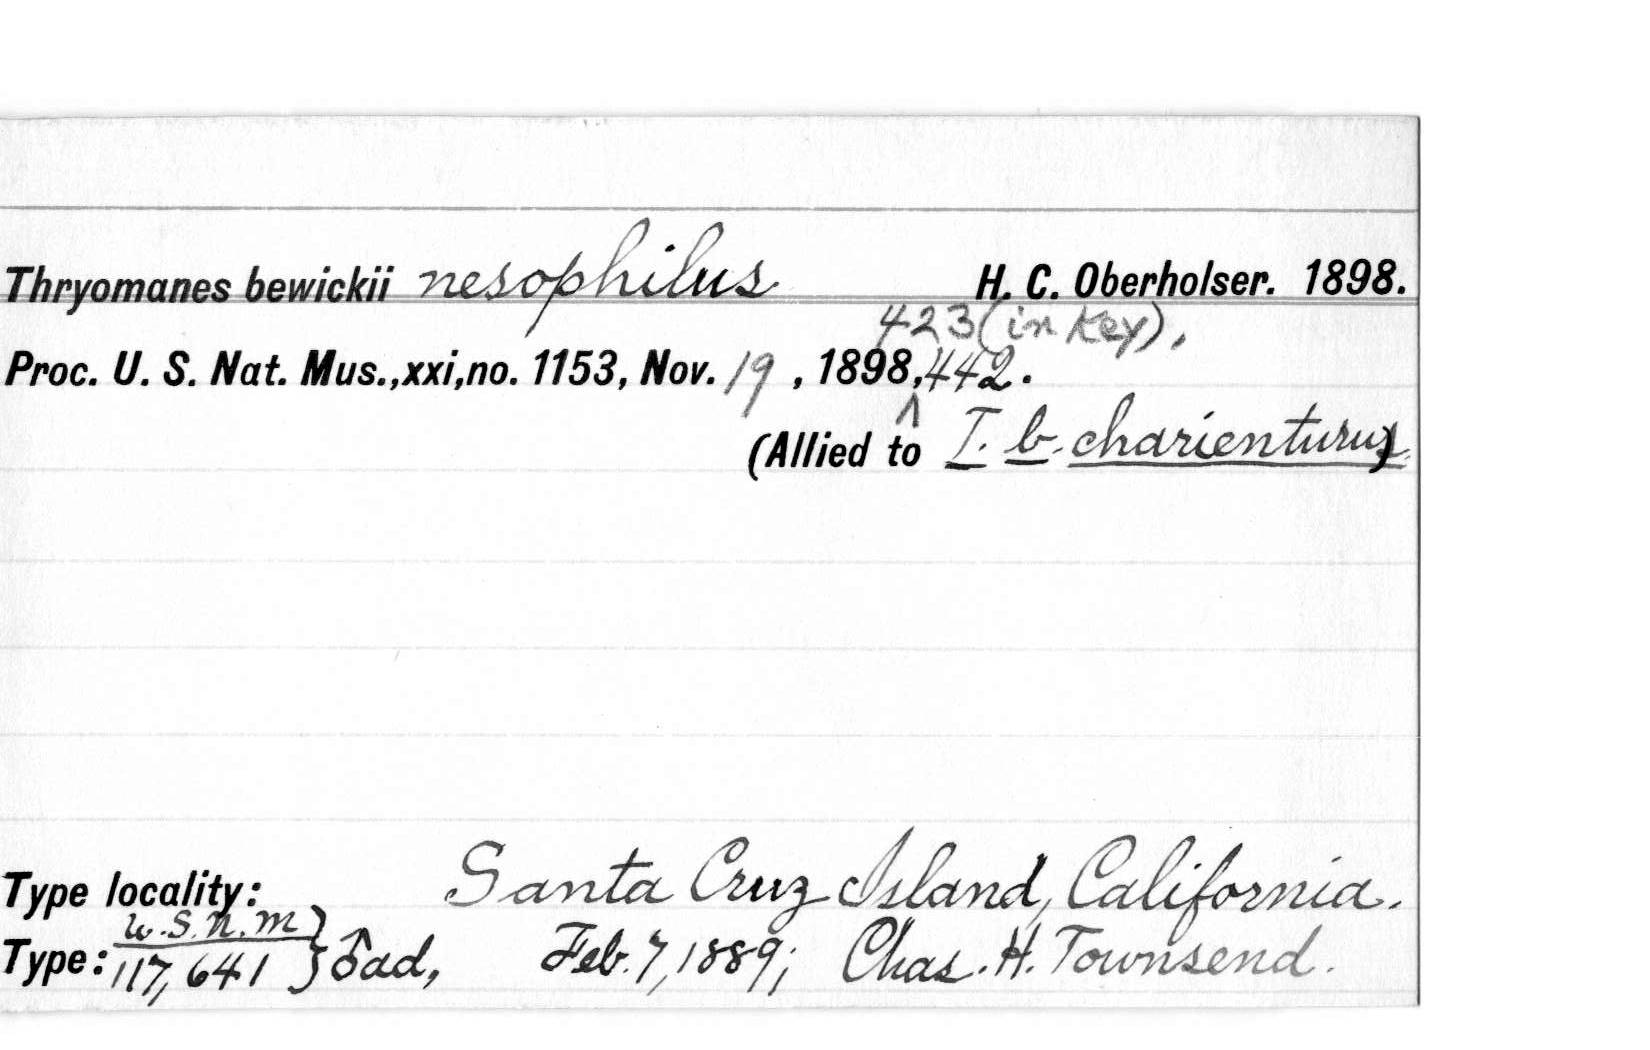 Thryomanes bewickii nesophilus H. C. Oberholser. 1898.
423 (in Key),
Proc. U. S. Nat. Mus.,xxi,no. 1153, Nov. 19 , 1898, ^ 442.
(Allied to T. b. charienturus)
Type locality: Santa Cruz Island, California.
U.S.N.M }
Type: 117,641 } ♂ ad, Feb. 7, 1889; Chas. H. Townsend.